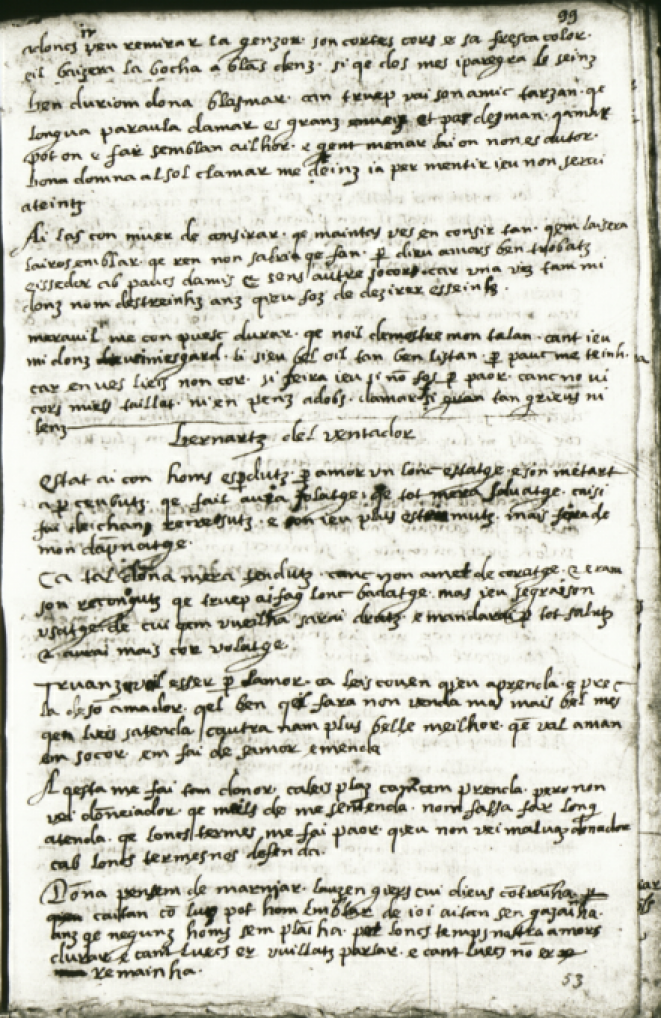 99
adoncs veu remirar la genzor. son cortes cors e sa fresca color.
eil baizera la bocha a blas denz. si qe dos mes iparegra lo seinz
ben duriom dona blasmar. can truep vai son amic tarzan. qe
longua paraula damar es granz enveig et par desman. qamar
pot on e far semblan ailhor. e gent mentir lai on non es autor.
bona domna al sol clamar me deinz ia per mentir ieu non serai
ateintz
Ai las con muer de consirar. qe maintas ves en consir tan. qem
lairos emblar. qe ren non sabria qe fan. p diru amors ben trobatz
ab paucs damis & sens autre socors. car una vez tam mi
donz nom destreinhz anz qieu foz de dezirer esseinhz.
meravil me con puesc durar. qe noil demostre mon talan. cant ieu
mi donz li sieu bel oil tan ben listan. p pauc me teinh.
car enves lieis non cor. si feira ieu si no fos p paor. canc no vi
cors miels taillat. ni en penz adobs. damar si gran tan grieus ni
lenz
bernartz del ventador
Estat ai con homs esp̄dutz. p amor un lonc estatge. e son metart
ap̄cenbutz. qe fait avia folatge. qe tot mera salvatge. caisi
fui de chan recresutz. e con ieu plus estau mutz. mais fera de
mon dapnatge.
Ca tal dona mera rendutz. canc non amet de coratge. & eram
son recongutz qe truep ai faq lonc badatge. mas ieu segrai son
usatge. de cui qem vueilha sarai drutz. e mandarai p tot salutz
& aurai mais cor volatge.
Truanz voil esser p samor. ca leis coven qieu aprenda. e pre
la de so amador. qel ben qel fara non venda mas mais bel mes
qen lueis satenda contra nam plus belle meilhor. qe val aman
em socor. em fai de samor emenda
Aqesta me fai tan donor. caleis plaz camcem prenda. pero non
vei doneiador. qe miels de me sentenda. nom fassa far long
atenda. qe loncs termes me fai paor. qieu non vei malvaz donador
cab loncs termes nos defenda.
Dona pensem de marrjar. lauzengiers cui dieus contraiha.
caitan co pot hom emblar de ioi aitan sen gazaiha.
anz qe negunz homs sem plaiha. pot loncs temps nostra amors
durar. e cant luecs er vuillatz parlar. e cant luecs no er
remainha.
53